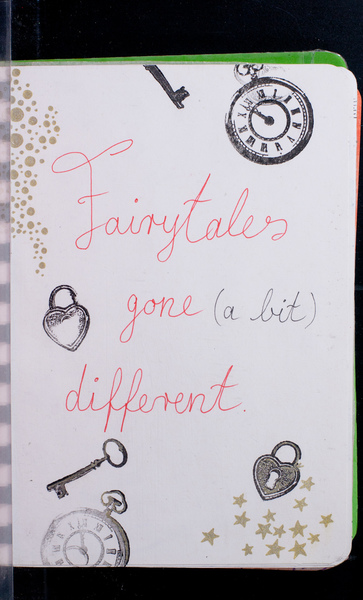 Fairytales
gone (a bit)
different.